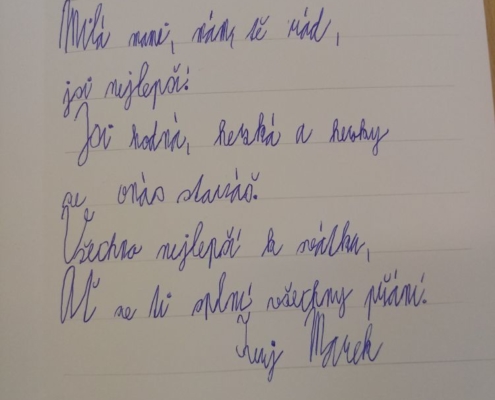 Milá mami, mám tě rád,
jsi nejlepší.
Jsi hodná, hezká a hezky
se onás staráš.
Všechno nejlepší k svátku,
Ať se ti splní všechny přání.
Tvuj Marek